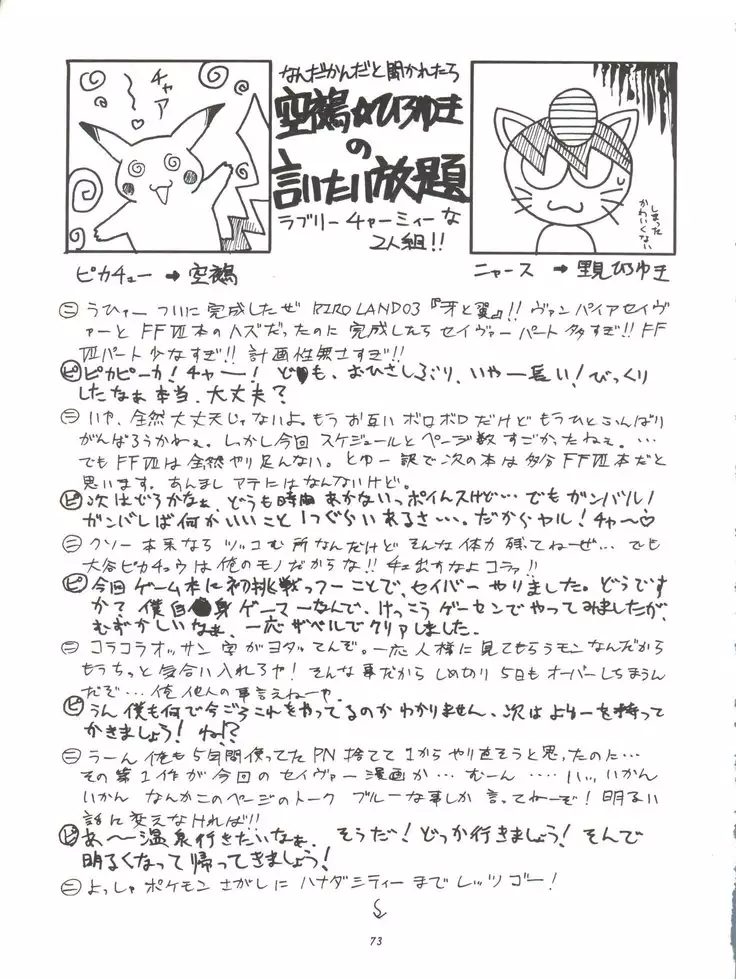 なんだかんだと聞かれたら
空鵺☆ひろゆき
の
言いたい放題
ラブリーチャーミィーな
2人組!!
チャア
〜♡
しまった
かわいくない
ピカチュー→空鵺
ニャース→里見ひろゆき
㊁うひゃー ついに完成したぜ RIROLAND03『牙と翼』!! ヴァンパイアセイヴ
ァーとFFⅦ本のハズだったのに完成したらセイヴァーパート多すぎ!! FF
Ⅶパート少なすぎ!! 計画性無さすぎ!!
㋪ピカピーカ! チャー! ども、おひさしぶり、いやー長い! びっくり
したなぁ本当、大丈夫?
㊁いや、全然大丈夫じゃないよ。もうお互いボロボロだけど もうひとふんばり
がんばろうかねぇ。しかし今回 スケジュールとページ数 すごかったねぇ。…
でもFFⅦは全然やり足んない。とゆー訳で次の本は多分FFⅦ本だと
思います。あんましアテにはなんないけど。
㋪次はどうかなぁ、どうも時間あかないっポイんスけど…でもガンバル!
ガンバレば何かいいこと1つぐらいあるさ…。だからヤル! チャ〜♡
㊁クソー 本来なら ツッコむ所なんだけど そんな体力 残ってねーぜ… でも
大谷ピカチュウは俺のモノだからな!! チェ出すなよコラァ!!
㋪今回ゲーム本に初挑戦っつーことで、セイバーやりました。どうです
か? 僕自身ゲーマーなんで、けっこうゲーセンでやってみましたが、
むずかしいなぁ、一応ザベルでクリアしました。
㊁コラコラオッサン 字がヨタッてんぞ。一応 人様に見てもらうモンなんだから
もうちっと気合い入れろや! そんな事だから しめ切り5日もオーバーしちまうん
だぞ…俺他人の事言えねーや。
㋪うん 僕も何で今ごろこれをやってるのかわかりません、次はよゆーを持って
かきましょう! ね!?
㊁うーん 俺も5年間使ってたPN捨てて1からやり直そうと思ったのに…
その第1作が今回のセイヴァー漫画か…むーん ….いいっ、いかん
いかん なんかこのページのトーク ブルーな事しか言ってねーぞ! 明るい
話に変えなければ!!
㋪あ〜温泉行きたいなぁ、そうだ! どっか行きましょう! そんで
明るくなって帰ってきましょう!
㊁よっしゃ ポケモン さがしに ハナダシティーまでレッツゴー!
73